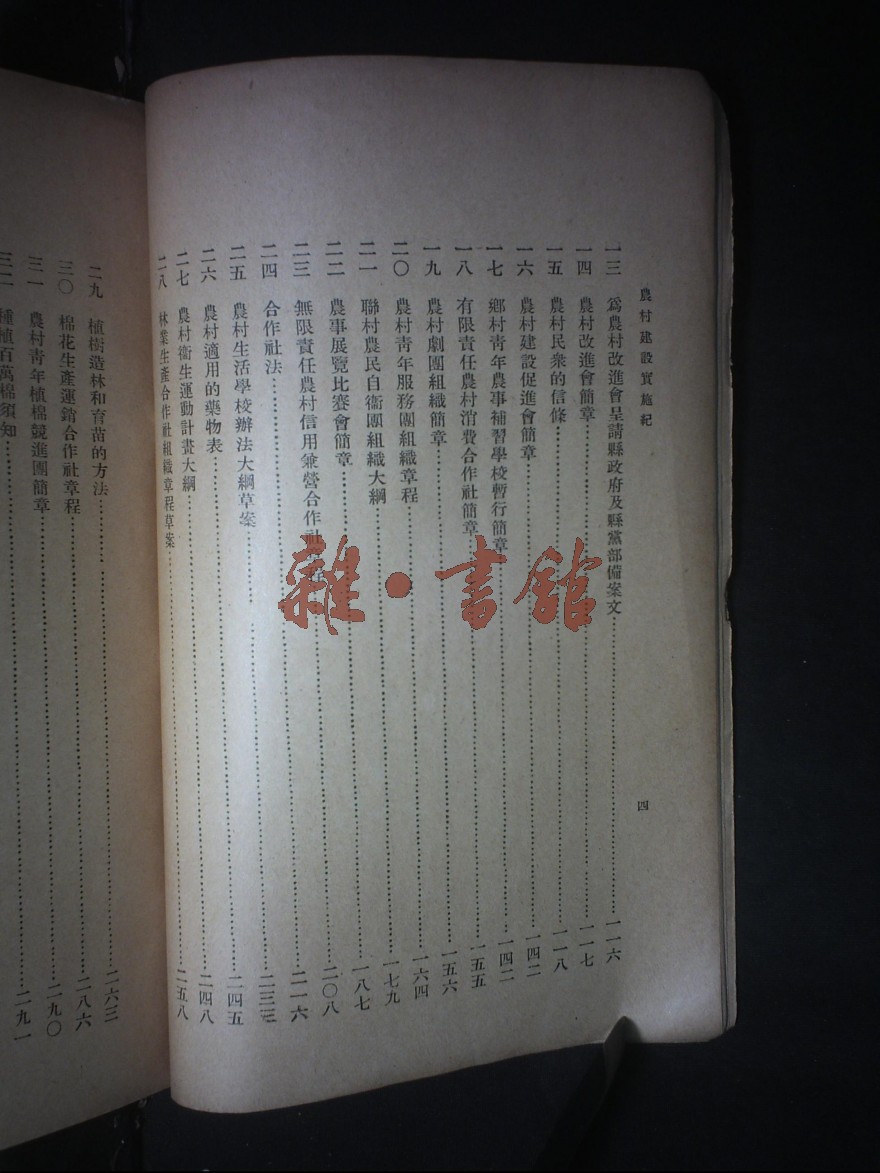 農村建設實施紀
四
一三 爲農村改進會呈請縣政府及縣黨部備案文……一一六
一四 農村改進會簡章……一一七
一五 農村民衆的信條……一一八
一六 農村建設促進會簡章……一四二
一七 鄉村青年農事補習學校暫行簡章……一四二
一八 有限責任農村消費合作社簡章……一五五
一九 農村劇團組織簡章……一五六
二〇 農村青年服務團組織章程……一六四
二一 聯村農民自衞團組織大綱……一七九
二二 農事展覽比賽會簡章……一八七
二三 無限責任農村信用兼營合作社……二〇八
二四 合作社法……二一六
二五 農村生活學校辦法大綱草案……二三三
二六 農村適用的藥物表……二四五
二七 農村衞生運動計畫大綱……二四八
二八 林業生產合作社組織章程草案……二五八
二九 植樹造林和育苗的方法……二六三
三〇 棉花生產運銷合作社章程……二八六
三一 農村青年植棉競進團簡章……二九〇
三二 種植百萬棉須知……二九一
雜·書館